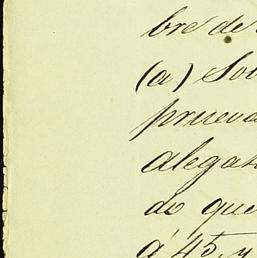 bre de
(a) Sob
prueva
alegat
do que
á 45, y